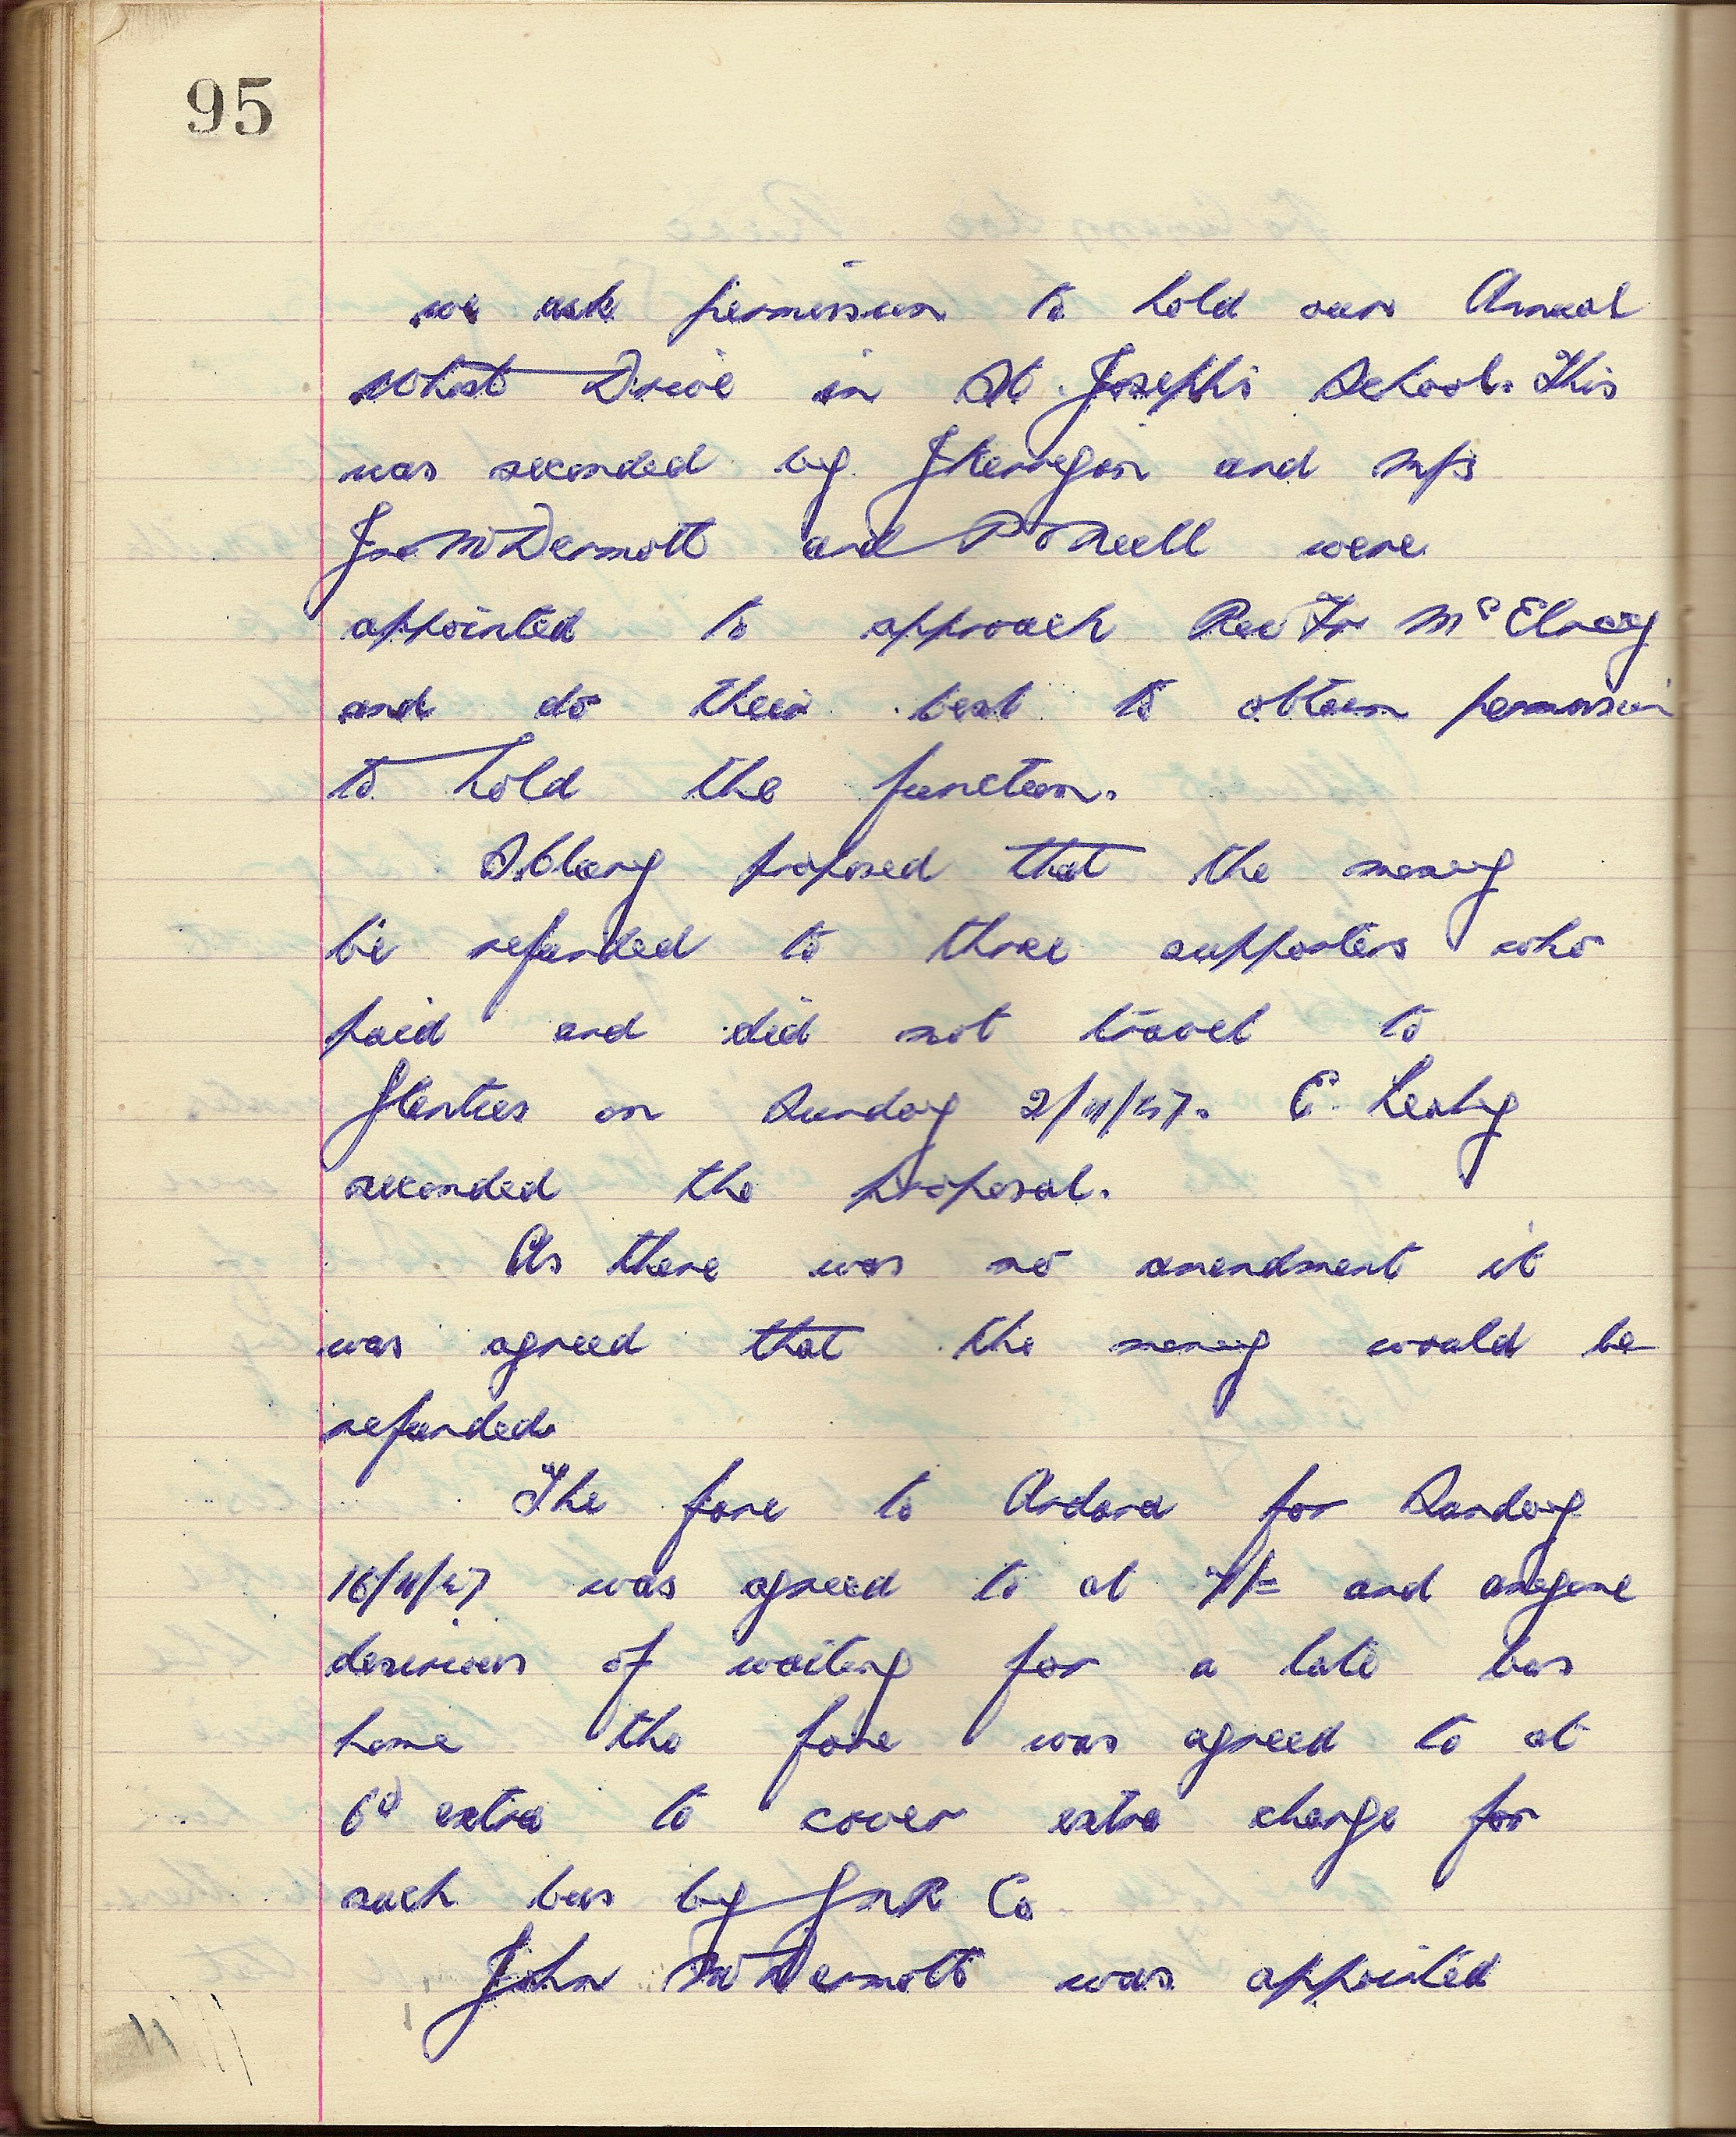 95
we ask permission to hold our Annual
Whist Drive in St. Joseph's School. This
was seconded by J Kerrigan and Mrs
Jas McDermott and P O'Neill were
appointed to approach Rev Fr McElroy
and do their best to obtain permission
to hold the function.
S. Cleary proposed that the money
be refunded to those supporters who
paid and did not travel to
Glenties on Sunday 2/11/47. C. Leahy
seconded the proposal.
As there was no amendment it
was agreed that the money would be
refunded.
The fare to Ardara for Sunday
16/11/47 was agreed to at 7/= and anyone
desirious of waiting for a late bus
home the fare was agreed to at
6d extra to cover extra charge for
such bus by GNR Co
John McDermott was appointed